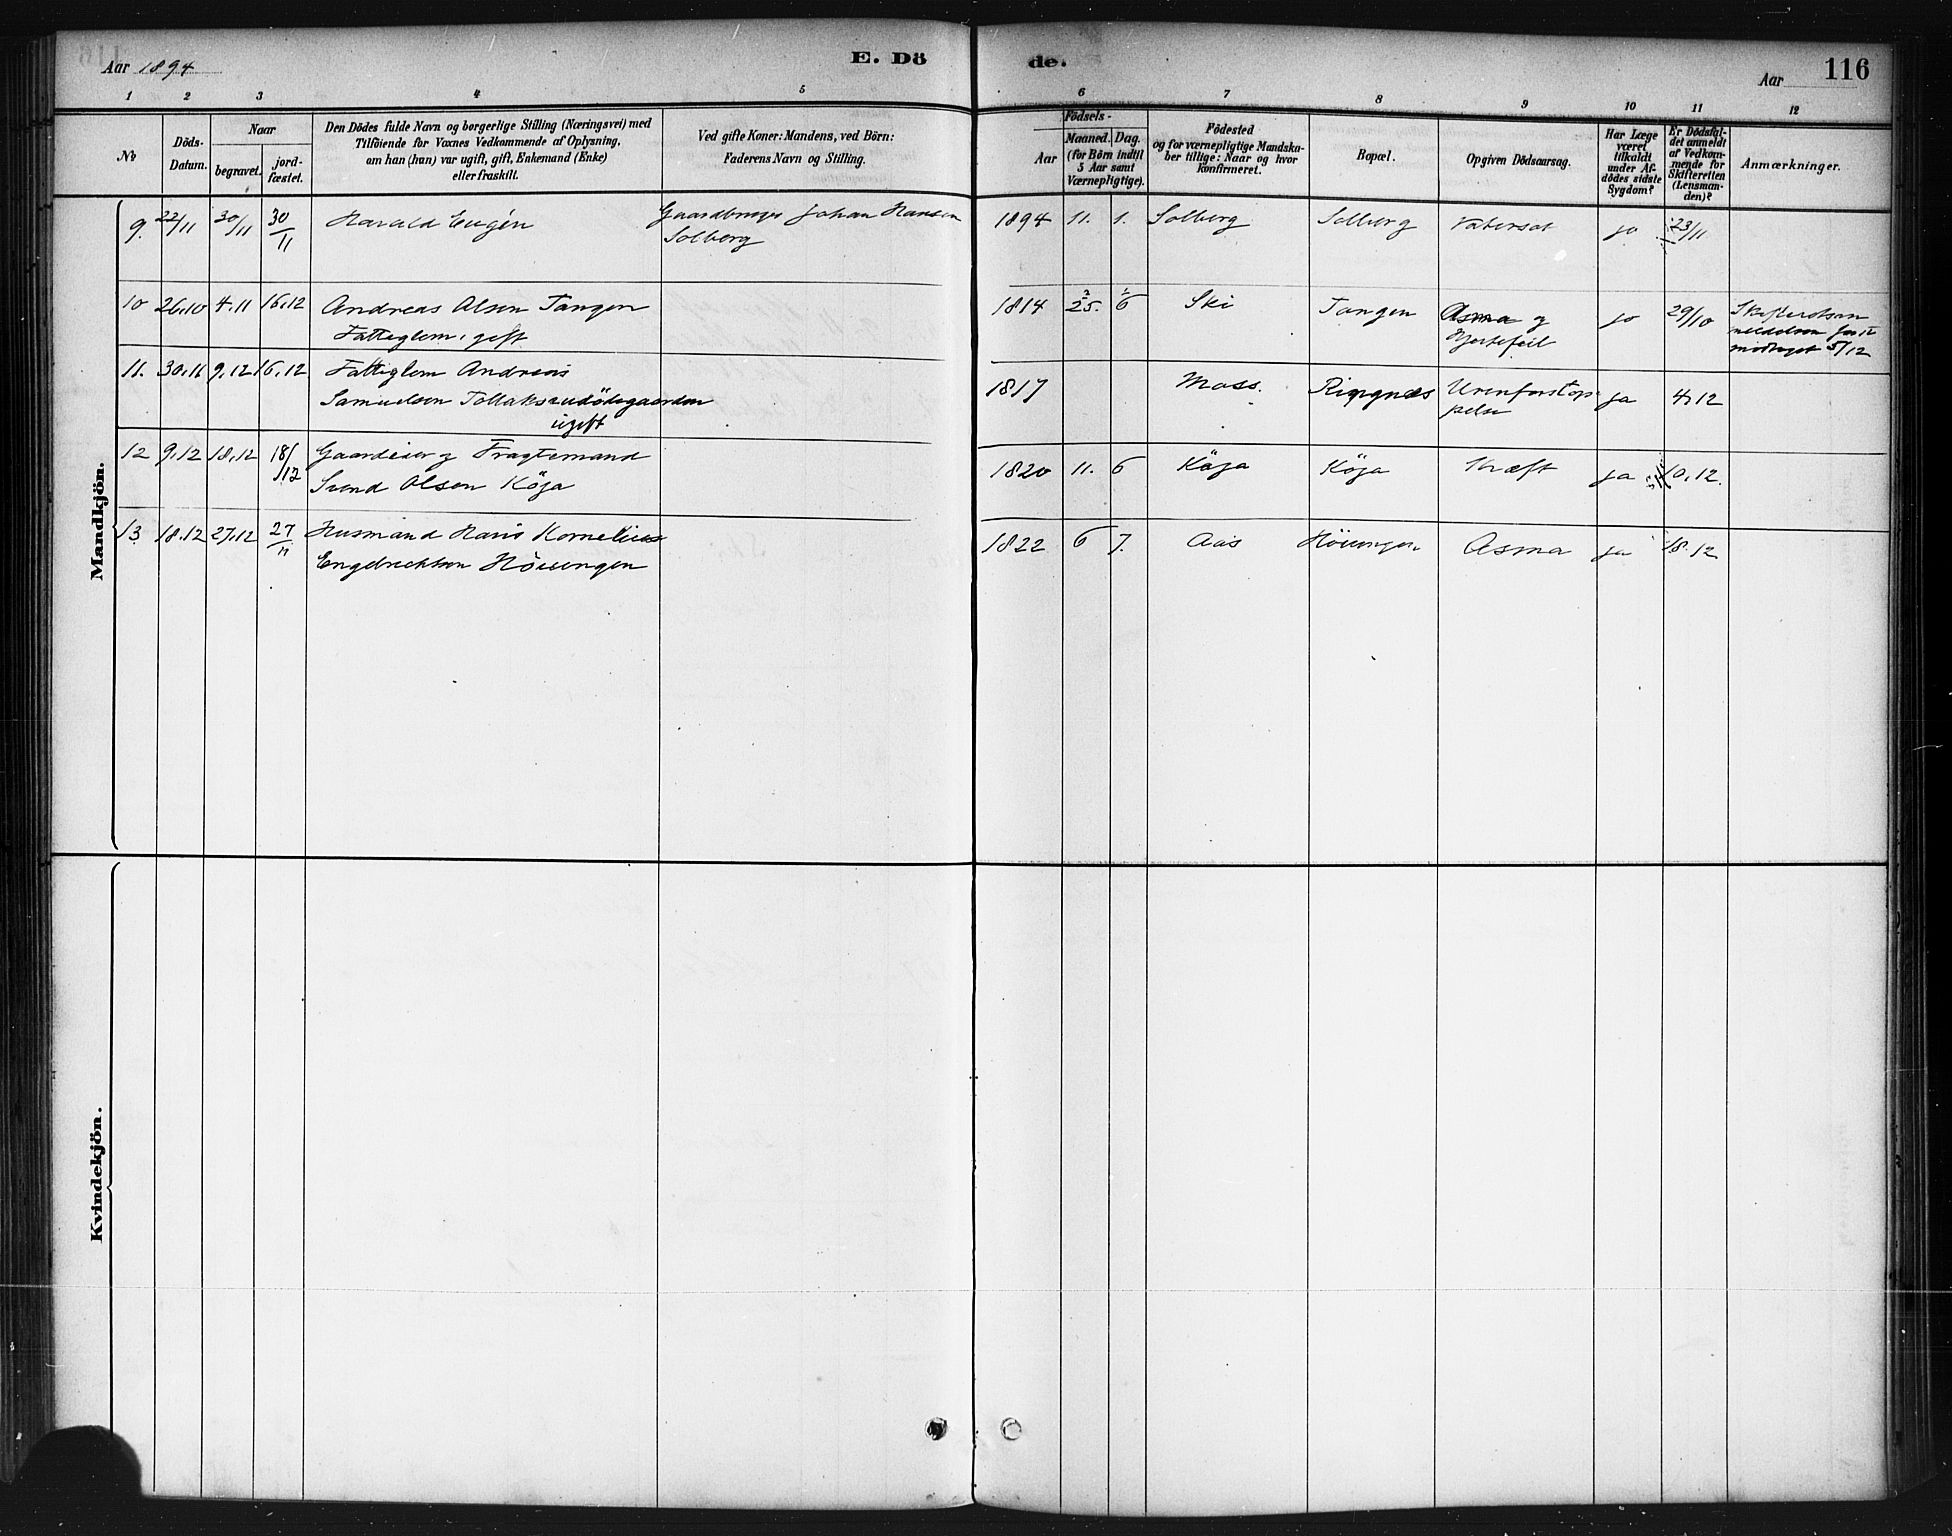 Aar 1894
E. Dö
de.
Aar
116
1 2 3 4 5 6 7 8 9 10 11 12
No
Döds-
Datum.
Naar
begravet.
jord-
fæstet.
Den Dödes fulde Navn og borgerlige Stilling (Næringsvei) med
Tilföiende for Voxnes Vedkommende af Oplysning,
om han (hun) var ugift, gift, Enkemand (Enke)
eller fraskilt.
Ved gifte Koner: Mandens, ved Börn:
Faderens Navn og Stilling.
Födsels-
Aar
Maaned. Dag.
(for Börn indtil
5 Aar samt
Værnepligtige).
Födested
og for værnepligtige Mandska-
ber tillige: Naar og hvor
konfirmeret.
Bopæl.
Opgiven Dödsaarsag.
Har Læge
været
tilkaldt
under Af-
dödes sidste
Sygdom?
Er Dödsfal-
det anmeldt
af Vedkom-
mende for
Skifteretten
(Lensman-
den)?
Anmærkninger.
Mandkjön.
9. 22/11 30/11 30/11 Harald Eugén Gaardbruger Johan Hansen 1894 11. 1. Solberg Solberg ja 23/11
Solberg
10 26.10 4.11 16.12 Andreas Olsen Tangen 1814 25. 6 Ski Tangen Asma og ja 29/10
Fattiglem, gift Hjertefeil 5/12
11. 30.11 9.12 16.12 Fattiglem Andreas 1817 Moss. Ringnæs ja 4.12
Samuelsen Tollaksrudödegaarden
ugift
12 9.12 18.12 18/12 Gaardeier og Fragtemand 1820 11. 6 Köja Köja Kræft ja 10.12.
Svend Olsen Köja
13 18.12 27.12 27/11 Husmand Hans Kornelius 1822 6 7. Aas Asma ja 18.12
Engebrektsen
Kvindekjön.